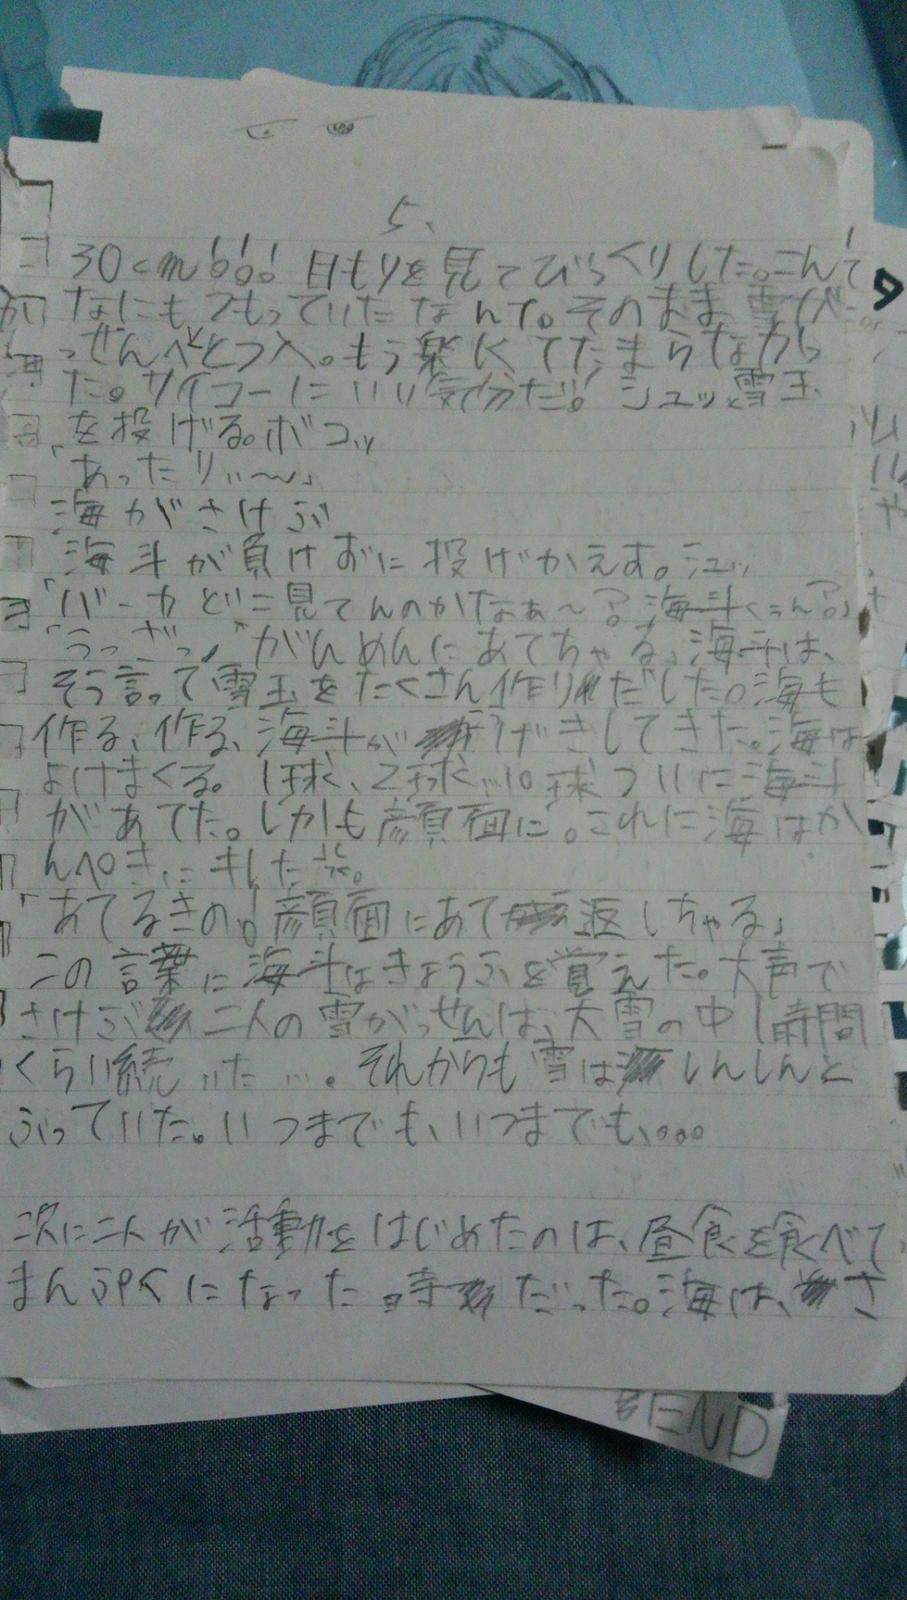 5、
30cmも!! 目もりを見てびっくりした。こんて
なにもつもっていたなんて。そのまま雪が
っせんへとつ入。もう楽しくてたまらなかっ
た。サイコーにいい気分だ!シュッと雪玉
を投げる。ボコッ
「あったりぃ〜」
海がさけぶ
海斗が負けずに投げかえす。シュッ
「バーカどこ見てんのかなぁ〜?海斗くーん?」
「うっざっ」がんめんにあてちゃる」海斗は、
そう言って雪玉をたくさん作りだした。海も
作る、作る、海斗がげきしてきた。海は
よけまくる。1球、2球…10球ついに海斗
があてた。しかも顔面に。これに海はか
んぺきにキレた。
「あてるきの!顔面にあて返しちゃる」
この言葉に海斗はきょうふを覚えた。大声で
さけぶ二人の雪がっせんは、大雪の中1時間
くらい続いた…。それからも雪はしんしんと
ふっていた。いつまでも、いつまでも、。。。
次に二人が活動をはじめたのは、昼食を食べて
まんぷくになった時だった。海は、さ
END